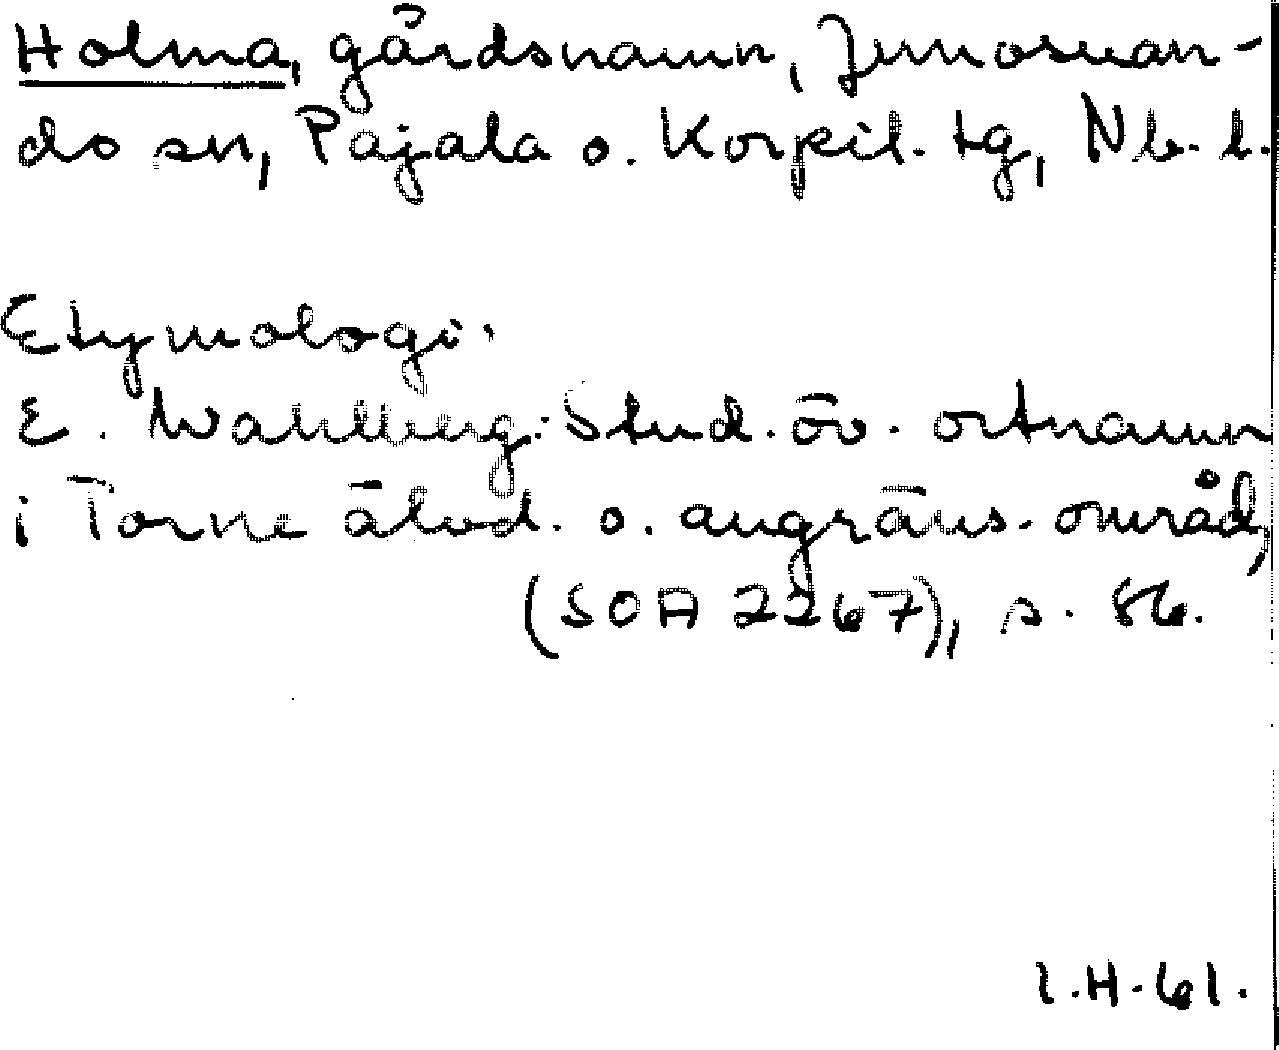 Holma, gårdsnamn, Junosuan-
do sn, Pajala o. Korpil. tg, Nb. l.
Etymologi.
E. Wahlberg: Stud. öv. ortnamn
i Torne älvd. o. angräns. områd,
(SOA 2267), s. 86.
I.H.61.